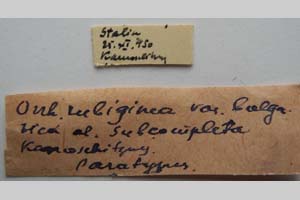 Stalin
25.VI.950
Karnoschitzky
Orrh. rubiginea var. bulga-
rica ab. subcompleta
Karnoschitzky.
Paratypus.